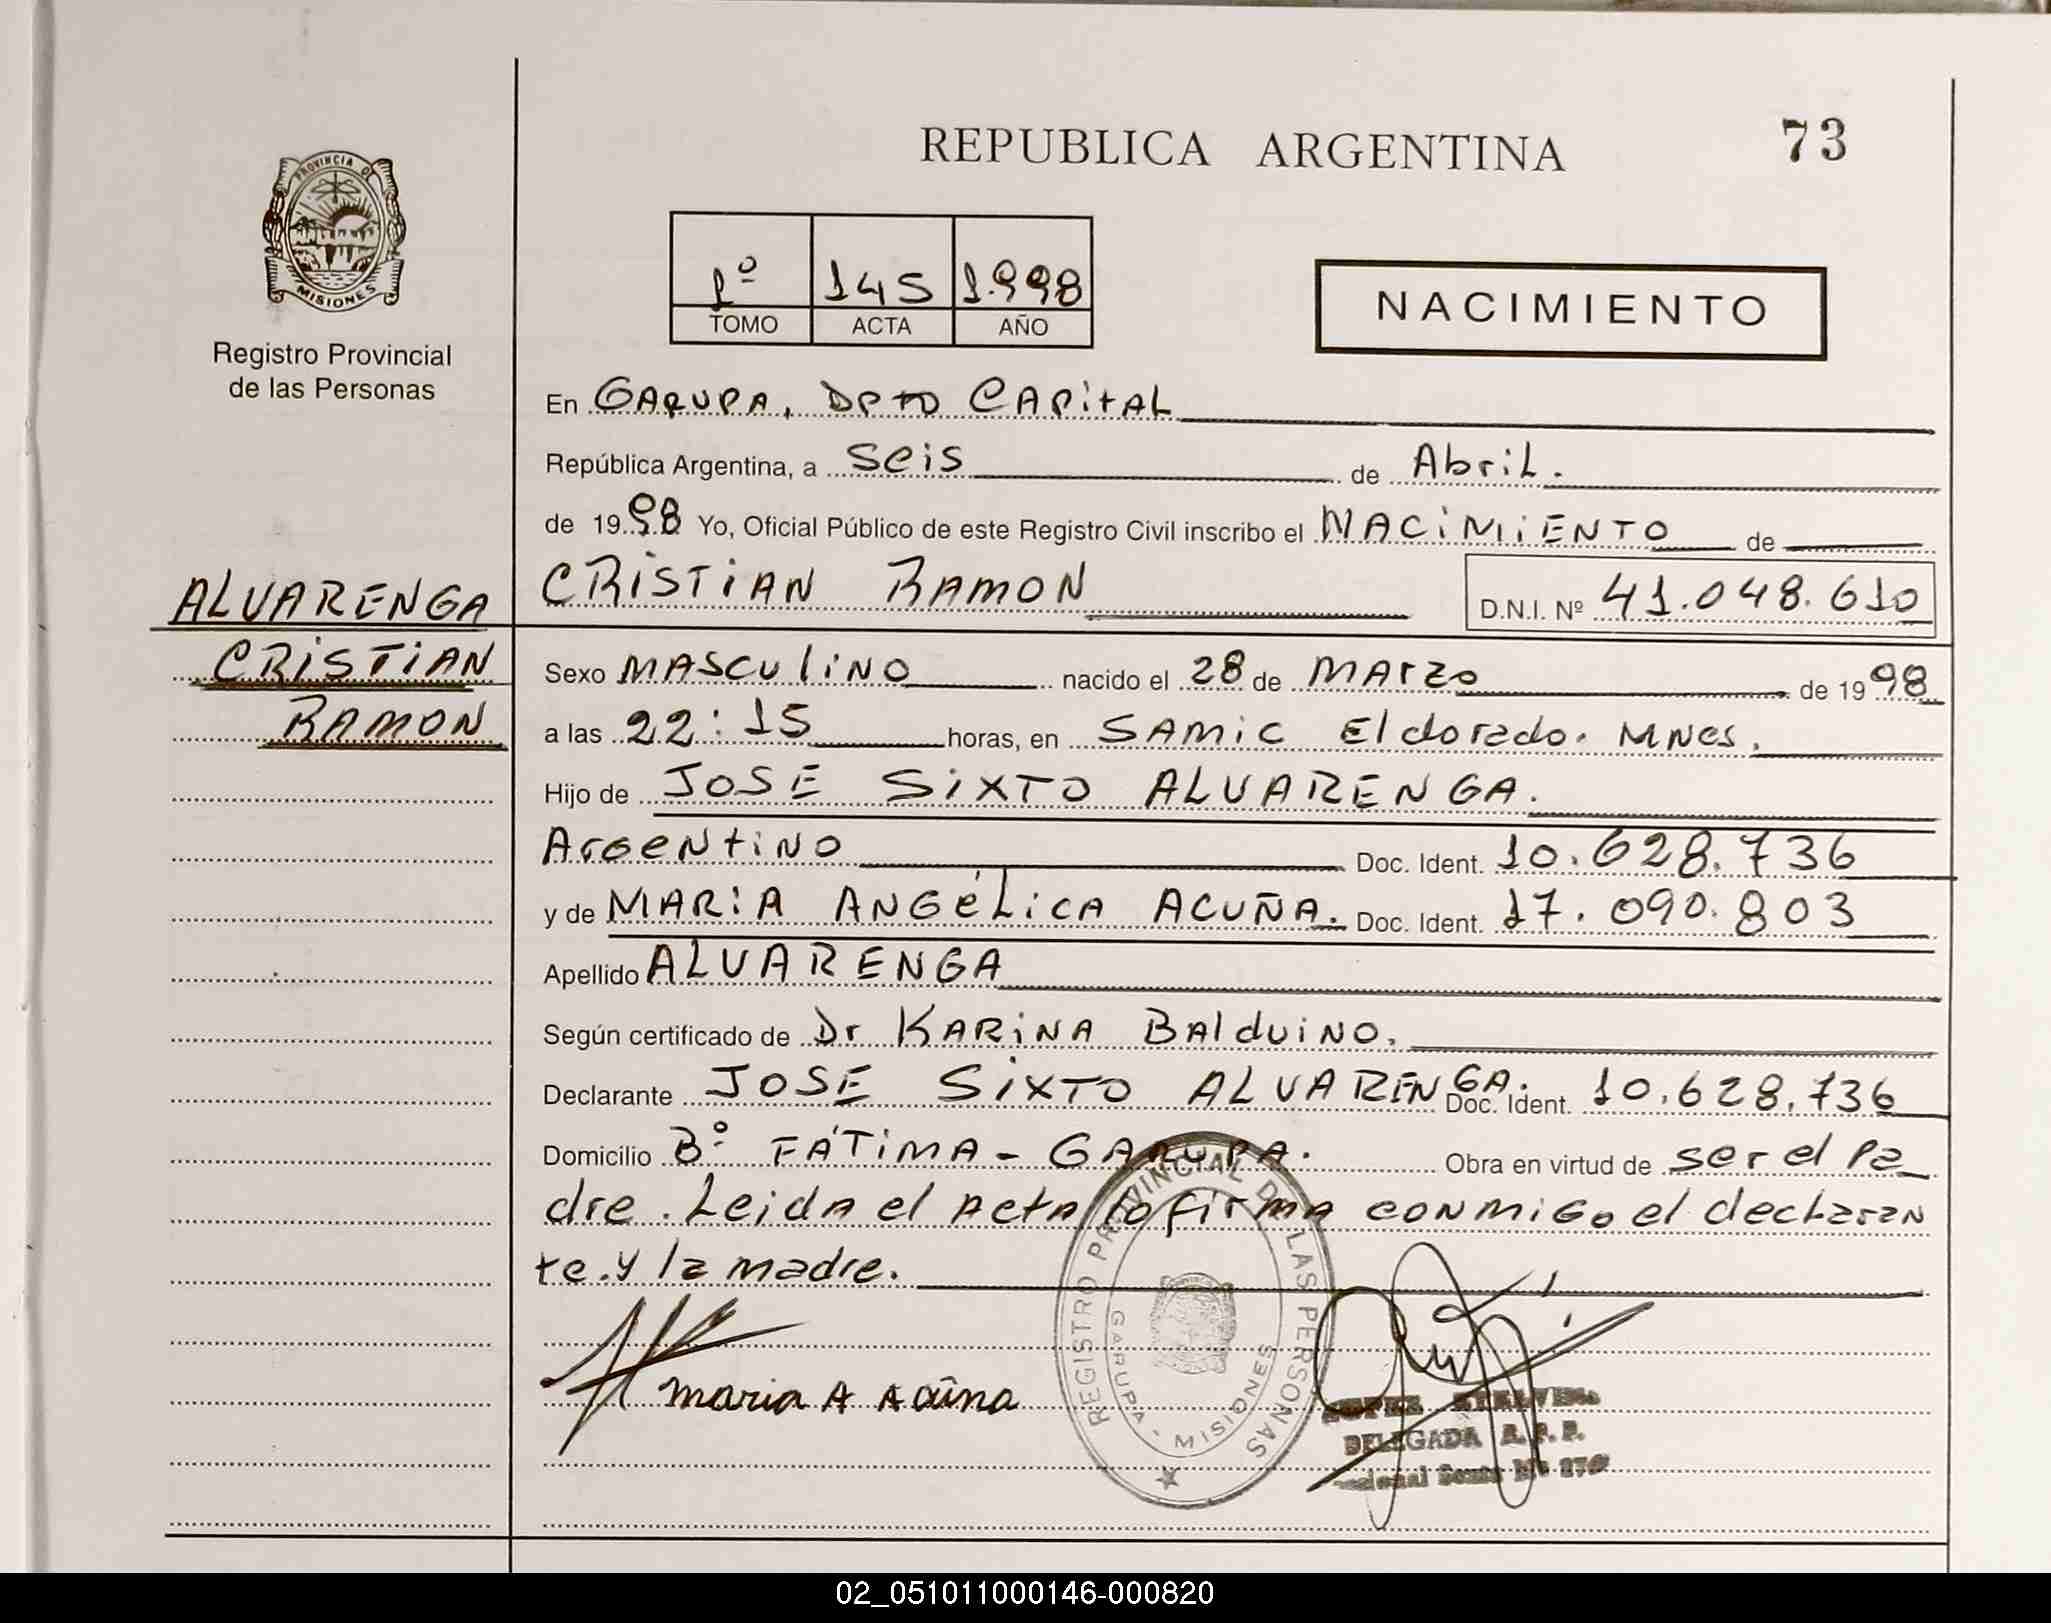 REPUBLICA ARGENTINA
73
PROVINCIA DE
MISIONES
Registro Provincial
de las Personas
1º 145 1.998
TOMO ACTA AÑO
NACIMIENTO
En GARUPA, DPTO CAPITAL
República Argentina, a Seis de Abril.
de 19 98 Yo, Oficial Público de este Registro Civil inscribo el NACIMIENTO de
ALVARENGA
CRISTIAN
RAMON
CRISTIAN RAMON D.N.I. Nº 41.048.610
Sexo MASCULINO nacido el 28 de MARZO de 19 98
a las 22:15 horas, en SAMIC Eldorado. MNES.
Hijo de JOSE SIXTO ALVARENGA.
Argentino Doc. Ident. 10.628.736
y de MARIA ANGÉLICA ACUÑA. Doc. Ident. 17.090.803
Apellido ALVARENGA
Según certificado de Dr KARINA BALDUINO.
Declarante JOSE SIXTO ALVARENGA. Doc. Ident. 10.628.736
Domicilio Bº FÁTIMA - GARUPA. Obra en virtud de ser el pa
dre. Leida el acta lo firma conmigo el declaran
te. y la madre.
Maria A Acuña
REGISTRO PROVINCIAL DE LAS PERSONAS
GARUPA - MISIONES
DELEGADA R. P. P.
02_051011000146-000820